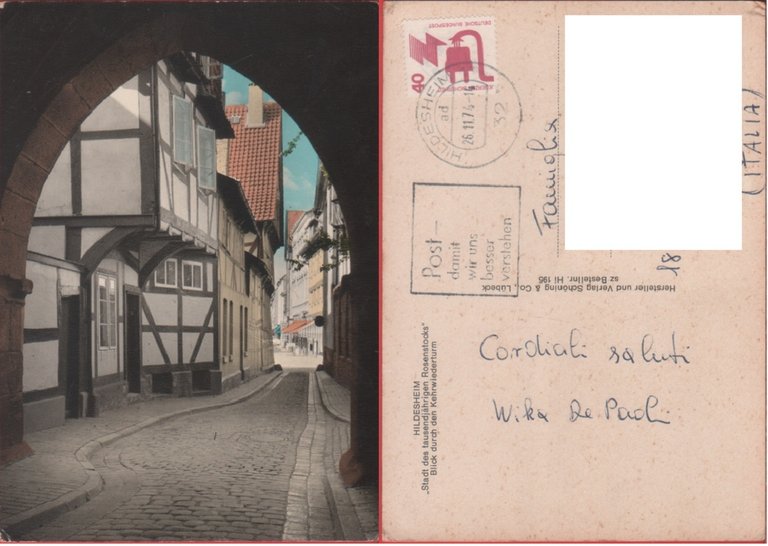 DEUTSCHE BUNDESPOST
40
HILDESHEIM
ad
26.11.74-1
32
Post-
damit
wir uns
besser
verstehen
Famiglia
(ITALIA)
18
Hersteller und Verlag Schöning & Co., Lübeck
sz Bestellnr. Hi 195
HILDESHEIM
„Stadt des tausendjährigen Rosenstocks"
Blick durch den Kehrwiederturm
Cordiali saluti
De Paoli